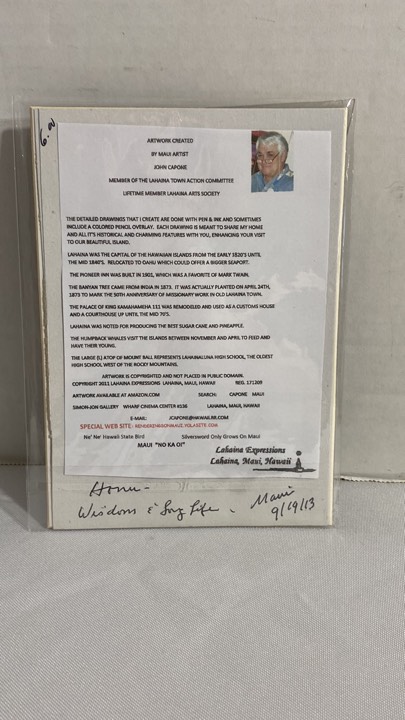 6. a
ARTWORK CREATED
BY MAUI ARTIST
JOHN CAPONE
MEMBER OF THE LAHAINA TOWN ACTION COMMITTEE
LIFETIME MEMBER LAHAINA ARTS SOCIETY
THE DETAILED DRAWINGS THAT I CREATE ARE DONE WITH PEN & INK AND SOMETIMES
INCLUDE A COLORED PENCIL OVERLAY. EACH DRAWING IS MEANT TO SHARE MY HOME
AND ALL IT'S HISTORICAL AND CHARMING FEATURES WITH YOU, ENHANCING YOUR VISIT
TO OUR BEAUTIFUL ISLAND.
LAHAINA WAS THE CAPITAL OF THE HAWAIIAN ISLANDS FROM THE EARLY 1820'S UNTIL
THE MID 1840'S. RELOCATED TO OAHU WHICH COULD OFFER A BIGGER SEAPORT.
THE PIONEER INN WAS BUILT IN 1901, WHICH WAS A FAVORITE OF MARK TWAIN.
THE BANYAN TREE CAME FROM INDIA IN 1873. IT WAS ACTUALLY PLANTED ON APRIL 24TH,
1873 TO MARK THE 50TH ANNERSARY OF MISSIONARY WORK IN OLD LAHAINA TOWN.
THE PALACE OF KING KAMAHAMEHA 111 WAS REMODELED AND USED AS A CUSTOMS HOUSE
AND A COURTHOUSE UP UNTIL THE MID 70'S.
LAHAINA WAS NOTED FOR PRODUCING THE BEST SUGAR CANE AND PINEAPPLE.
THE HUMPBACK WHALES VISIT THE ISLANDS BETWEEN NOVEMBER AND APRIL TO FEED AND
HAVE THEIR YOUNG.
THE LARGE (L) ATOP OF MOUNT BALL REPRESENTS LAHAINALUNA HIGH SCHOOL, THE OLDEST
HIGH SCHOOL WEST OF THE ROCKY MOUNTAINS.
ARTWORK IS COPYRIGHTED AND NOT PLACED IN PUBLIC DOMAIN.
COPYRIGHT 2011 LAHAINA EXPRESSIONS LAHAINA, MAUI, HAWAII REG. 171209
ARTWORK AVAILABLE AT AMAZON.COM SEARCH: CAPONE MAUI
SIMON-JON GALLERY WHARF CINEMA CENTER #136 LAHAINA, MAUI, HAWAII
E-MAIL: JCAPONE@HAWAII.RR.COM
SPECIAL WEB SITE: RENDERENGSONMAUI.YOLASITE.COM
Ne' Ne' Hawaii State Bird Silversword Only Grows On Maui
MAUI "NO KA OI"
Lahaina Expressions
Lahaina, Maui, Hawaii
Honu -
Wisdom & Long Life - Maui
9/19/13